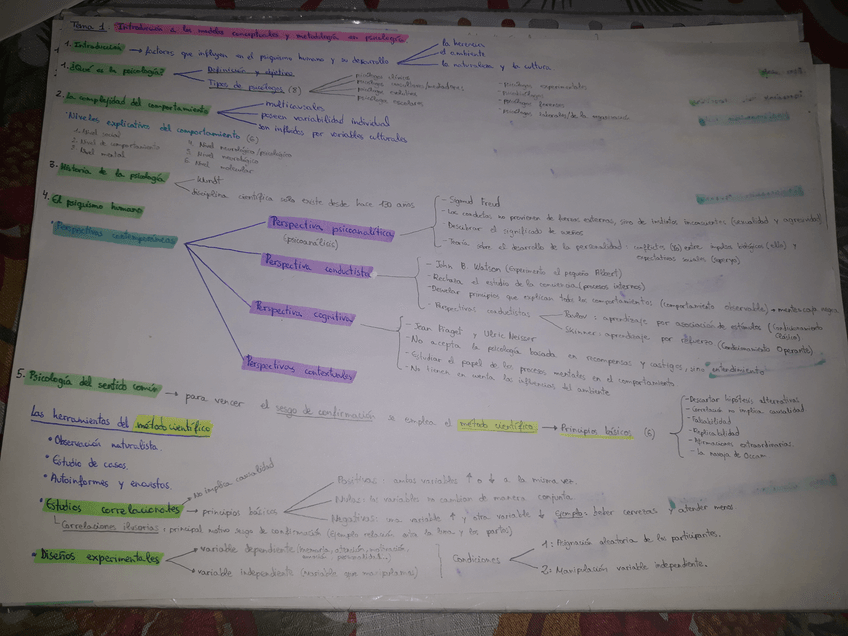 Tema 1: Introducción a los modelos conceptuales y metodología en psicología
1. Introducción → factores que influyen en el psiquismo humano y su desarrollo
la herencia
el ambiente
la naturaleza y la cultura
1. ¿Qué es la psicología?
Definición y objetivos
Tipos de psicólogos (8)
psicólogo clínico
psicólogo escolar
- psicólogos experimentales
- psicobiólogos
- psicólogos forenses
2. La complejidad del comportamiento
multicausales
poseen variabilidad individual
son influidos por variables culturales
Niveles explicativos del comportamiento (6)
1. Nivel social
2. Nivel de comportamiento
3. Nivel mental
4. Nivel neurológico/fisiológico
5. Nivel neuroquímico
6. Nivel molecular
3. Historia de la psicología
Wundt
disciplina científica solo existe desde hace 130 años
4. El psiquismo humano
Perspectivas contemporáneas
Perspectiva psicoanalítica
(psicoanálisis)
- Sigmund Freud
- Las conductas no provienen de fuerzas externas, sino de instintos inconscientes (sexualidad y agresividad)
- Descubrir el significado de sueños
- Teoría sobre el desarrollo de la personalidad: conflictos (Yo) entre impulsos biológicos (ello) y
expectativas sociales (superyo)
Perspectiva conductista
- John B. Watson (experimento el pequeño Albert)
- Rechaza el estudio de la conciencia (procesos internos)
- Desvelar principios que explican todos los comportamientos (comportamiento observable) → mente = caja negra
- Perspectivas conductistas
Pavlov: aprendizaje por asociación de estímulos (Condicionamiento Clásico)
Skinner: aprendizaje por refuerzo (Condicionamiento Operante)
Perspectiva cognitiva
- Jean Piaget y Ulric Neisser
- No acepta la psicología basada en recompensas y castigos, una entendimiento
- Estudiar el papel de los procesos mentales en el comportamiento
- No tienen en cuenta las influencias del ambiente
Perspectivas contextuales
5. Psicología del sentido común
→ para vencer el sesgo de confirmación se emplea el método científico → Principios básicos (6)
- Descartar hipótesis alternativas.
- Correlación no implica causalidad
- Falsabilidad
- Replicabilidad
- Afirmaciones extraordinarias.
- La navaja de Occam
Las herramientas del método científico
• Observación naturalista.
• Estudio de casos.
• Autoinformes y encuestas.
• Estudios correlacionales
→ No implica causalidad
→ principios básicos
Positivas: ambas variables ↑ o ↓ a la misma vez.
Nulas: las variables no cambian de manera conjunta.
Negativas: una variable ↑ y otra variable ↓ Ejemplo: beber cervezas y atender menos
Correlaciones ilusorias: principal motivo sesgo de confirmación (Ejemplo relación entre la luna y los partos)
• Diseños experimentales
→ variable dependiente (memoria, atención, motivación, personalidad...)
→ variable independiente (variable que manipulamos)
Condiciones
1: Asignación aleatoria de los participantes.
2: Manipulación variable independiente.